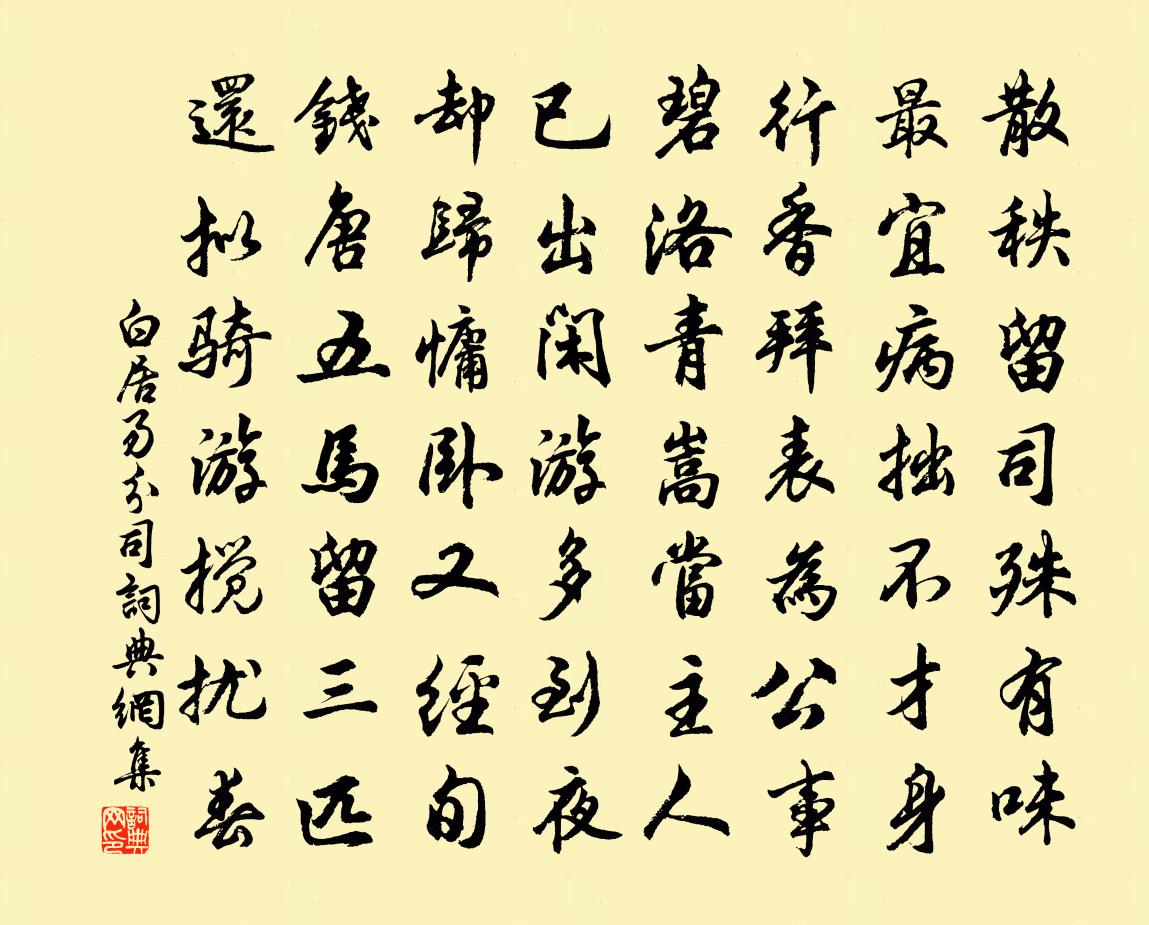 散秩留司殊有味
最宜病拙不才身
行香拜表為公事
碧洛青嵩當主人
已出閑游多到夜
却歸慵卧又經旬
錢唐五馬留三匹
還拟骑游搅扰春
白居易分司詞典網集
詞典網印